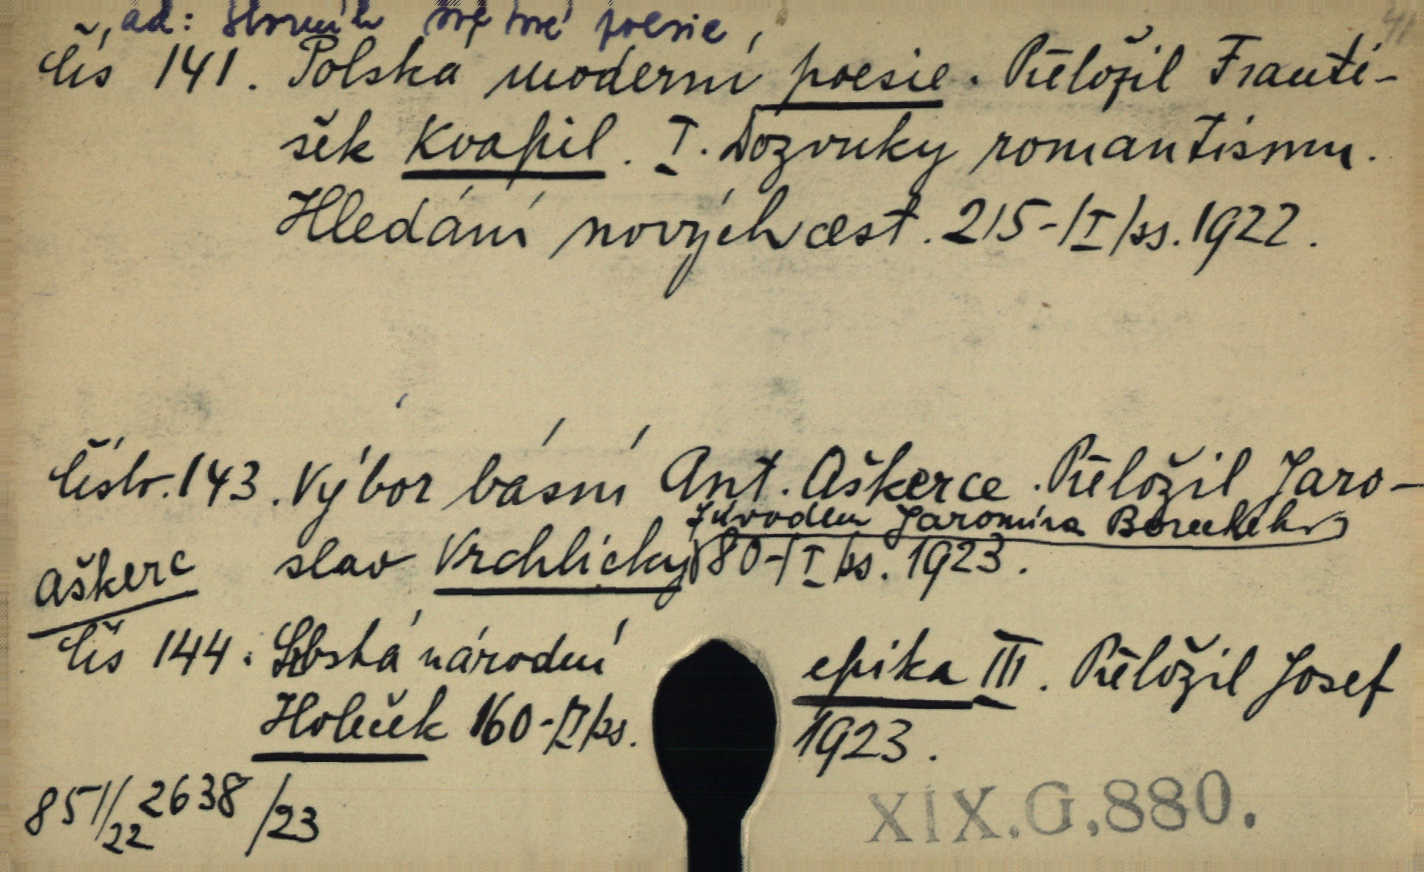 ad: Sborník světové poesie
41
Čís 141. Polská moderní poesie. Přeložil Franti-
šek Kvapil. I. Dozvuky romantismu.
Hledání nových cest. 215-/I/ss. 1922.
Číslo. 143. Výbor básní Ant. Aškerce. Přeložil Jaro-
S úvodem Jaromíra Boreckého
Aškerc slav Vrchlický 180-/I/ss. 1923.
Čís 144. Srbská národní epika III. Přeložil Josef
Holeček 160-/I/ss. 1923.
851/22 2638/23
XIX.G.880.